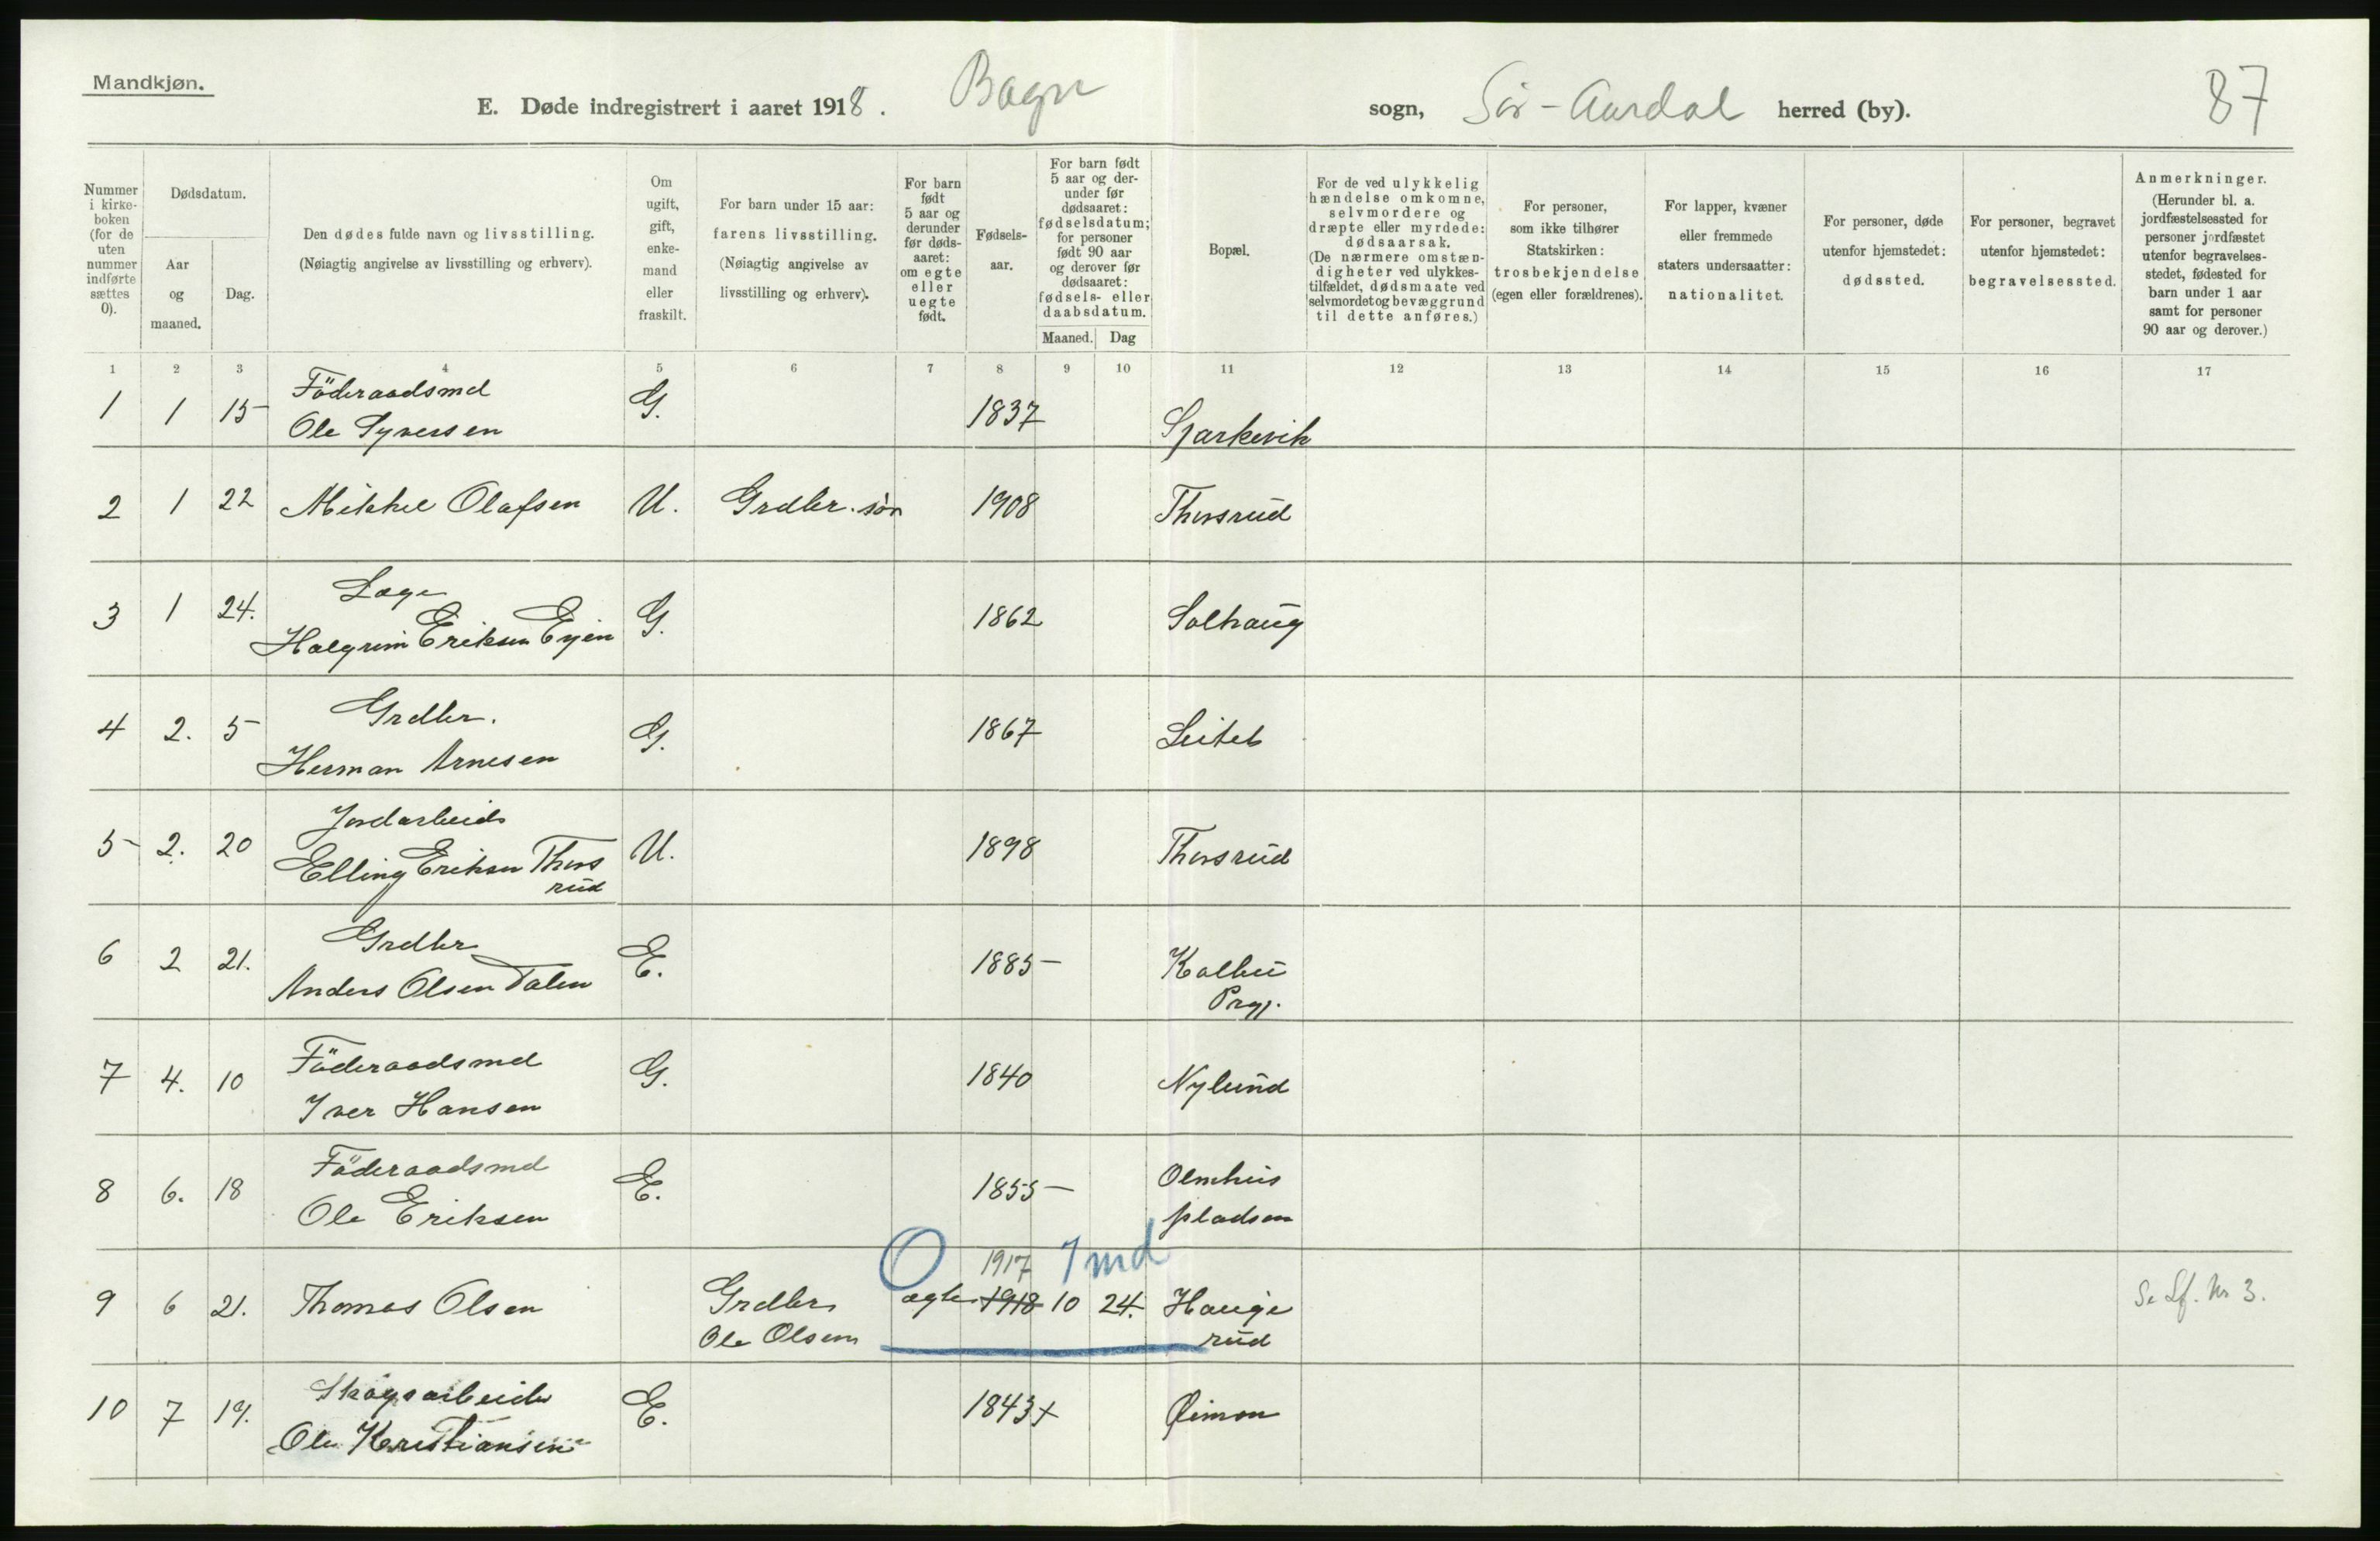 Mandkjøn.
E. Døde indregistrert i aaret 1918. Bagn sogn, Sør-Aurdal herred (by). 87
Nummer i kirke-boken (for de uten nummer indførte sættes 0).
Dødsdatum.
Aar og maaned.
Dag.
Den dødes fulde navn og livsstilling.
(Nøiagtig angivelse av livsstilling og erhverv).
Om ugift, gift, enke-mand eller fraskilt.
For barn under 15 aar: farens livsstilling.
(Nøiagtig angivelse av livsstilling og erhverv).
For barn født 5 aar og derunder før døds-aaret: om egte eller uegte født.
Fødsels-aar.
For barn født 5 aar og der-under før dødsaaret: fødselsdatum; for personer født 90 aar og derover før dødsaaret: fødsels- eller daabsdatum.
Maaned. Dag
Bopæl.
For de ved ulykkelig hændelse omkomne, selvmordere og dræpte eller myrdede: dødsaarsak.
(De nærmere omstæn-digheter ved ulykkes-tilfældet, dødsmaate ved selvmordet og bevæggrund til dette anføres.)
For personer, som ikke tilhører Statskirken: trosbekjendelse (egen eller forældrenes).
For lapper, kvæner eller fremmede staters undersaatter: nationalitet.
For personer, døde utenfor hjemstedet: dødssted.
For personer, begravet utenfor hjemstedet: begravelsessted.
Anmerkninger.
(Herunder bl. a. jordfæstelsessted for personer jordfæstet utenfor begravelses-stedet, fødested for barn under 1 aar samt for personer 90 aar og derover.)
1 2 3 4 5 6 7 8 9 10 11 12 13 14 15 16 17
Föderaadsmd
1 1 15 Ole Syversen G. 1837 Sparkevik
2 1 22 Mikkel Olafsen U. Grdbr. søn 1908 Thorsrud
Læge
3 1 24. Halgrim Eriksen Eyen G. 1862 Solhaug
Grdbr.
4 2. 5 Herman Arnesen G. 1867 Leiteb
Jordarbeids
5 2. 20 Elling Eriksen Thors U. 1898 Thorsrud
rud
Grdbr
6 2 21. Anders Olsen Dalen E. 1885 Kolbu
Prgj.
Föderaadsmd
7 4. 10 Iver Hansen G. 1840 Nylund
Föderaadsmd
8 6. 18 Ole Eriksen E. 1855 Olmhus
pladsen
O 1917 7 md
9 6 21. Thomas Olsen Grdbr. ægte 1918 10 24. Hauge
Ole Olsen rud
Se Lf. Nr 3.
Skogsarbeider
10 7 19. Ole Kristiansen E. 1843 + Øimon